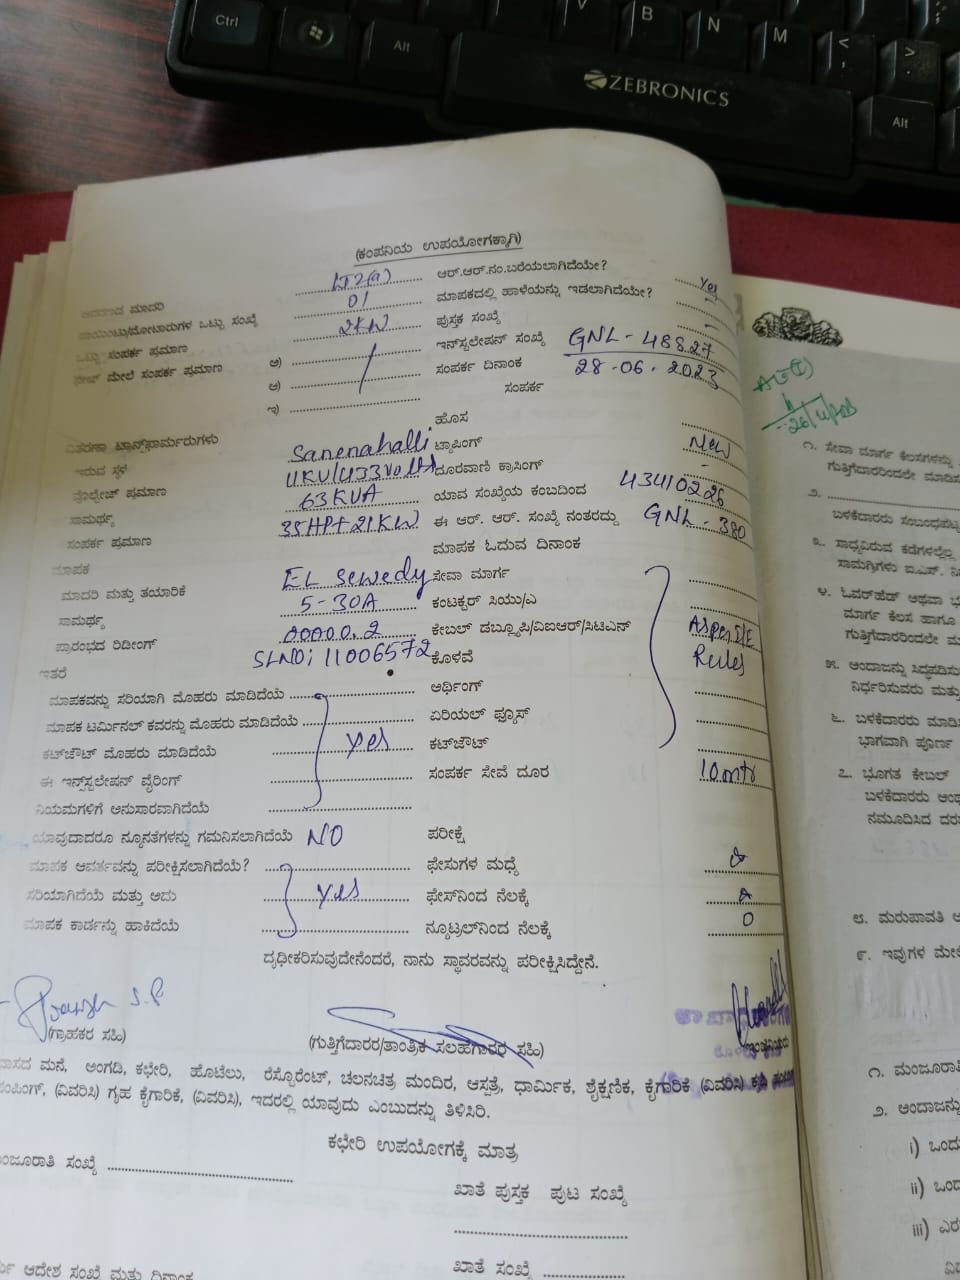 Ctrl
Alt
V
B
N
M
<
,
>
.
ZEBRONICS
Alt
(ಕಂಪನಿಯ ಉಪಯೋಗಕ್ಕಾಗಿ)
ಮಾದರಿ LT2(a) ಆರ್.ಆರ್.ನಂ.ಬರೆಯಲಾಗಿದೆಯೇ? Yes
ಒಟ್ಟು ಸಂಖ್ಯೆ 01 ಮಾಪಕದಲ್ಲಿ ಹಾಳೆಯನ್ನು ಇಡಲಾಗಿದೆಯೇ? -
ಒಟ್ಟು ಸಂಪರ್ಕ ಪ್ರಮಾಣ 2KW ಪುಸ್ತಕ ಸಂಖ್ಯೆ -
ಮೇಲೆ ಸಂಪರ್ಕ ಪ್ರಮಾಣ ಅ) ಇನ್‌ಸ್ಟಲೇಷನ್ ಸಂಖ್ಯೆ GNL-48827
ಆ) ಸಂಪರ್ಕ ದಿನಾಂಕ 28-06.2023
ಇ) ಸಂಪರ್ಕ
ವಿತರಣಾ ಟ್ರಾನ್ಸ್‌ಫಾರ್ಮರುಗಳು ಹೊಸ
ಇರುವ ಸ್ಥಳ Sanenahalli ಟ್ಯಾಪಿಂಗ್ New
ವೋಲ್ಟೇಜ್ ಪ್ರಮಾಣ 11KV/433Volts ದೂರವಾಣಿ ಕ್ರಾಸಿಂಗ್ -
ಸಾಮರ್ಥ್ಯ 63KVA ಯಾವ ಸಂಖ್ಯೆಯ ಕಂಬದಿಂದ 43410226
ಸಂಪರ್ಕ ಪ್ರಮಾಣ 35HP+21KW ಈ ಆರ್. ಆರ್. ಸಂಖ್ಯೆ ನಂತರದ್ದು GNL-380
ಮಾಪಕ ಮಾಪಕ ಓದುವ ದಿನಾಂಕ
ಮಾದರಿ ಮತ್ತು ತಯಾರಿಕೆ EL Sewedy ಸೇವಾ ಮಾರ್ಗ
ಸಾಮರ್ಥ್ಯ 5-30A ಕಂಟಕ್ಟರ್ ಸಿಯು/ಎ
ಪ್ರಾರಂಭದ ರಿಡಿಂಗ್ 00000.2 ಕೇಬಲ್ ಡಬ್ಲ್ಯೂಪಿ/ವಿಐಆರ್/ಸಿಟಿಎನ್ As per I/E
ಇತರೆ SLNO: 11006572 ಕೊಳವೆ Rules
ಮಾಪಕವನ್ನು ಸರಿಯಾಗಿ ಮೊಹರು ಮಾಡಿದೆಯೆ ಅರ್ಥಿಂಗ್
ಮಾಪಕ ಟರ್ಮಿನಲ್ ಕವರನ್ನು ಮೊಹರು ಮಾಡಿದೆಯೆ ಏರಿಯಲ್ ಫ್ಯೂಸ್
ಕಟ್‌ಔಟ್ ಮೊಹರು ಮಾಡಿದೆಯೆ Yes ಕಟ್‌ಔಟ್
ಈ ಇನ್ಸ್‌ಸ್ಟಲೇಷನ್ ವೈರಿಂಗ್ ಸಂಪರ್ಕ ಸೇವೆ ದೂರ 10mtr
ನಿಯಮಗಳಿಗೆ ಅನುಸಾರವಾಗಿದೆಯೆ
ಯಾವುದಾದರೂ ನ್ಯೂನತೆಗಳನ್ನು ಗಮನಿಸಲಾಗಿದೆಯೆ NO ಪರೀಕ್ಷೆ
ಮಾಪಕ ಆವರ್ತವನ್ನು ಪರೀಕ್ಷಿಸಲಾಗಿದೆಯೆ? ಫೇಸುಗಳ ಮಧ್ಯೆ
ಸರಿಯಾಗಿದೆಯೆ ಮತ್ತು ಅದು Yes ಫೇಸ್‌ನಿಂದ ನೆಲಕ್ಕೆ
ಮಾಪಕ ಕಾರ್ಡನ್ನು ಹಾಕಿದೆಯೆ ನ್ಯೂಟ್ರಲ್‌ನಿಂದ ನೆಲಕ್ಕೆ 0
ದೃಢೀಕರಿಸುವುದೇನೆಂದರೆ, ನಾನು ಸ್ಥಾವರವನ್ನು ಪರೀಕ್ಷಿಸಿದ್ದೇನೆ.
(ಗ್ರಾಹಕರ ಸಹಿ) (ಗುತ್ತಿಗೆದಾರರ/ತಾಂತ್ರಿಕ ಸಲಹಗಾರರ ಸಹಿ)
ಮನೆ, ಅಂಗಡಿ, ಕಛೇರಿ, ಹೊಟೆಲು, ರೆಸ್ಟೋರೆಂಟ್, ಚಲನಚಿತ್ರ ಮಂದಿರ, ಆಸ್ಪತ್ರೆ, ಧಾರ್ಮಿಕ, ಶೈಕ್ಷಣಿಕ, ಕೈಗಾರಿಕೆ (ವಿವರಿಸಿ)
(ವಿವರಿಸಿ) ಗೃಹ ಕೈಗಾರಿಕೆ, (ವಿವರಿಸಿ), ಇದರಲ್ಲಿ ಯಾವುದು ಎಂಬುದನ್ನು ತಿಳಿಸಿರಿ.
ಕಛೇರಿ ಉಪಯೋಗಕ್ಕೆ ಮಾತ್ರ
ಮಂಜೂರಾತಿ ಸಂಖ್ಯೆ ಖಾತೆ ಪುಸ್ತಕ ಪುಟ ಸಂಖ್ಯೆ
ಆದೇಶ ಸಂಖ್ಯೆ ಮತ್ತು ದಿನಾಂಕ ಖಾತೆ ಸಂಖ್ಯೆ
೧. ಸೇವಾ ಮಾರ್ಗ ಕೆಲಸಗಳನ್ನು
ಗುತ್ತಿಗೆದಾರರಿಂದಲೇ
೨.
ಬಳಕೆದಾರರು
೩. ಸಾಧ್ಯವಿರುವ
ಸಾಮಗ್ರಿಗಳು
೪. ಓವರ್‌ಹೆಡ್ ಅಥವಾ
ಮಾರ್ಗ ಕೆಲಸ ಹಾಗೂ
ಗುತ್ತಿಗೆದಾರರಿಂದಲೇ
೫. ಅಂದಾಜನ್ನು
ನಿರ್ಧರಿಸುವರು
೬. ಬಳಕೆದಾರರು
ಭಾಗವಾಗಿ ಪೂರ್ಣ
೭. ಭೂಗತ ಕೇಬಲ್
ಬಳಕೆದಾರರು
ನಮೂದಿಸಿದ
೮. ಮರುಪಾವತಿ
೯. ಇವುಗಳ
೧.
೨. ಅಂದಾಜನ್ನು
i) ಒಂದು
ii)
iii)